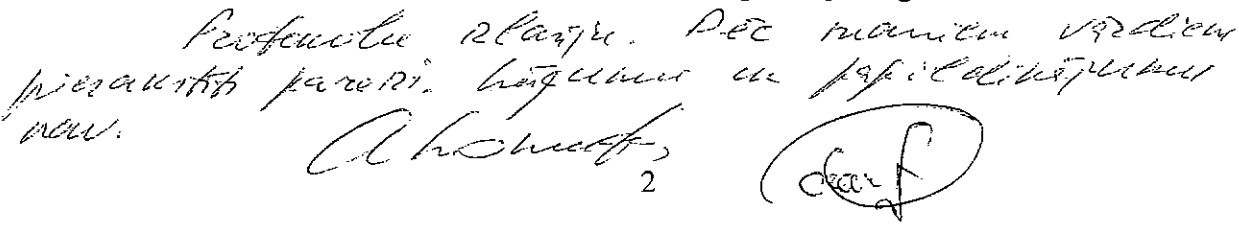 Protokolu izlasīju. Pēc maniem vārdiem
pierakstīts pareizi. Lūgumu un papildinājumu
nav.
2